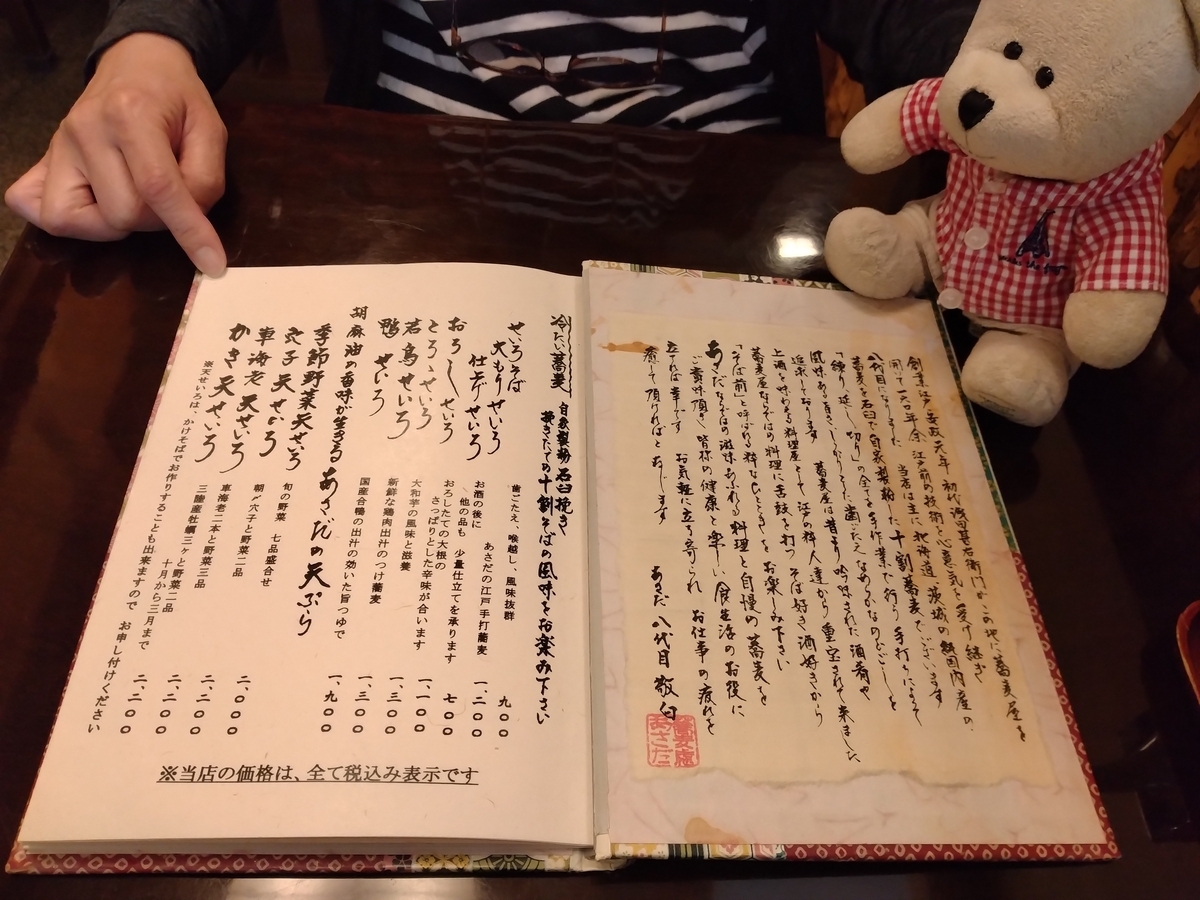 創業は江戸安政元年 初代浅田甚右衛門がこの地に蕎麦屋を
開いて一六〇年余 江戸前の技術と心意気を受け継ぎ
八代目になりました 当店は主に北海道 茨城の純国内産の
蕎麦を石臼で自家製粉した十割蕎麦でございます
「練り 延し 切り」の全てを手作業で行う手打ちによって
風味ある香り しっかりとした歯ごたえ なめらかなのどごしを
追求しております 蕎麦屋は昔より 吟味された酒肴や
上酒を味わえる料理屋として 江戸の粋人達から重宝されて来ました
蕎麦屋ならではの料理に舌鼓を打つ そば好き 酒好きから
「そば前」と呼ばれる粋なひとときをお楽しみ下さい
あさだならではの滋味あふれる料理と自慢の蕎麦を
ご賞味頂き 皆様の健康と楽しい食生活のお役に
立てれば幸です お気軽に立ち寄られ お仕事の疲れを
癒して頂ければと存じます
あさだ 八代目 敬白
蕎麦處
あさだ
冷たい蕎麦 自家製粉 石臼挽き
挽きたての十割そばの風味をお楽み下さい
せいろそば 歯ごたえ、喉越し、風味抜群 九〇〇
大もりせいろ あさだの江戸手打蕎麦 一、二〇〇
仕上げせいろ お酒の後に
他の品も 少量仕立てを承ります 七〇〇
おろしせいろ おろしたての大根の
さっぱりとした辛味が合います 一、一〇〇
とろろせいろ 大和芋の風味と滋養 一、三〇〇
若鳥せいろ 新鮮な鶏肉出汁のつけ蕎麦 一、三〇〇
鴨せいろ 国産合鴨の出汁の効いた旨つゆで 一、九〇〇
胡麻油の香味が生きる あさだの天ぷら
季節野菜天せいろ 旬の野菜 七品盛合せ 二、〇〇〇
穴子天せいろ 朝〆穴子と野菜二品 二、二〇〇
車海老天せいろ 車海老二本と野菜三品 二、二〇〇
かき天せいろ 三陸産牡蠣三ケと野菜二品 十月から三月まで 二、二〇〇
※天せいろは、かけそばでお作りすることも出来ますので お申し付けください
※当店の価格は、全て税込み表示です